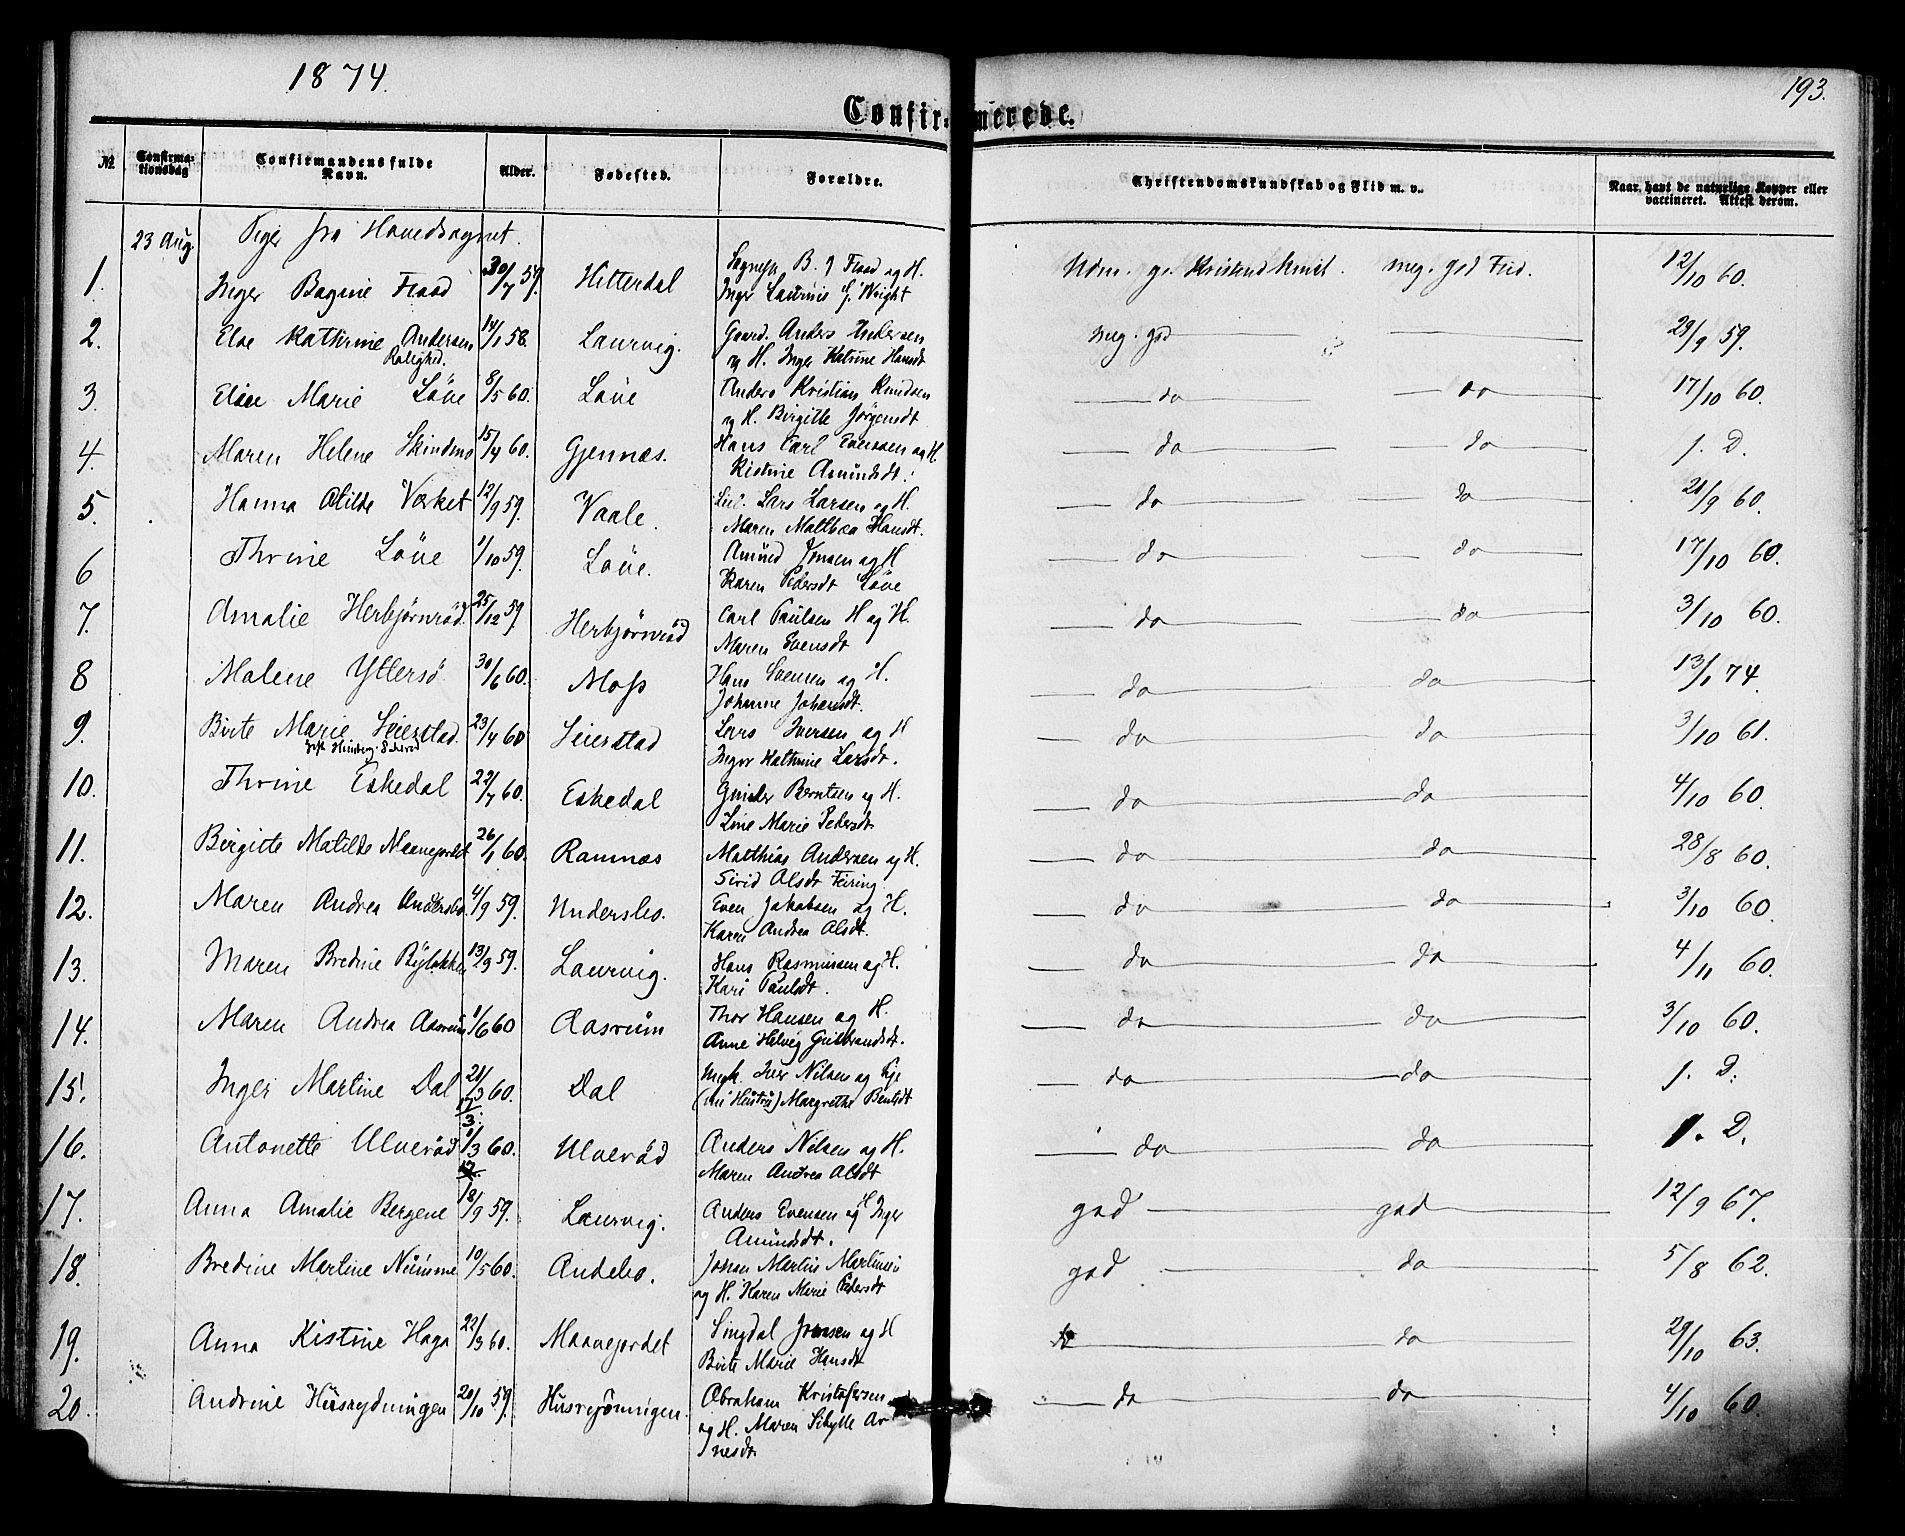 1874.
193.
Confirmerede.
№ Confirmationsdag Confirmandens fulde Navn. Alder. Fødested. Forældre. Christendomskundskab og Flid m. v. Naar havt de naturlige Kopper eller vaccineret. Attest derom.
23 Aug. Piger fra Hovedsognet.
1. Inger Bagine Flood 30/7 59. Hitterdal Sognepr. B. J Flood og H. Udm. g. Kristend.kundsk. meg. god Flid. 12/10 60.
Inger Laurinis f. Wright
2. Else Kathrine Andersen 14/1 58. Laurvig. Gaard. Anders Andersen meg. god 29/9 59.
Rolighed. og H. Inger Katrine Hansdt
3. Elise Marie Löve 8/5 60. Löve Anders Kristian Knudsen do do 17/10 60.
og H. Birgitte Jörgensdt
4. Maren Helene Skindmo 15/4 60. Gjennæs. Hans Carl Evensen og H. do do 1. D.
Kistine Amundsdt.
5. Hanna Otilde Værket 12/9 59. Vaale. Lars Larsen og H. do do 21/9 60.
Maren Mathea Hansdt.
6 Thrine Löve 1/10 59. Löve. Amund Jonsen og H do do 17/10 60.
Karen Pedersdt Löve
7. Amalie Herbjørnröd 25/12 59 Herbjörnröd Carl Paulsen H og H. do do 3/10 60.
Maren Evensdt
8 Malene Yttersö 30/6 60. Moss Hans Svensen og H. do do 13/1 74.
Johanne Johansdt.
9. Birte Marie Seierstad. 23/4 60 Seierstad Lars Iversen og H do do 3/10 61.
Inger Kathrine Larsdt.
10. Thrine Eskedal 22/7 60. Eskedal Gunder Berntsen og H. do do 4/10 60.
Line Marie Pedersdt.
11. Birgitte Matilde Maanejordet 26/1 60. Ramnæs Matthias Andersen og H. do do 28/8 60.
Sirid Olsdt Feiring.
12. Maren Andrea Undersbo 4/9 59. Undersbo. Even Jakobsen og H. do do 3/10 60.
Karen Andrea Olsdt.
13. Maren Bredine Bylökken 13/9 59. Laurvig. Hans Rasmussen og H. do do 4/11 60.
Kari Paulsdt.
14. Maren Andrea Aasrum 1/6 60 Aasrum Thor Hansen og H. do do 3/10 60.
Anne Helvig Gulbrandsdt.
15. Inger Martine Dal 21/3 60. Dal Ungk. Iver Nilsen og Pige do do 1. D.
17/3. (nu Hustru) Margrethe Bentsdt
16. Antonette Ulveröd 1/3 60. Ulveröd Anders Nilsen og H. do do 1. D.
Maren Andrea Olsdt
17. Anna Amalie Bergene 18/9 59. Laurvig. Anders Evensen og H Inger god god 12/9 67.
Amundsdt.
18. Bredine Martine Numme 10/5 60. Andebo. Johan Martin Martinsen god do 5/8 62.
og H. Karen Marie Pedersdt
19. Anna Kistine Haga 22/3 60. Maanejordet Singdal Jensen og H do do 29/10 63.
Birte Marie Hansdt
20. Andrine Husrydningen 20/10 59. Husrydningen. Abraham Kristofersen do do 4/10 60.
og H. Maren Sibylle Ar
nesdt